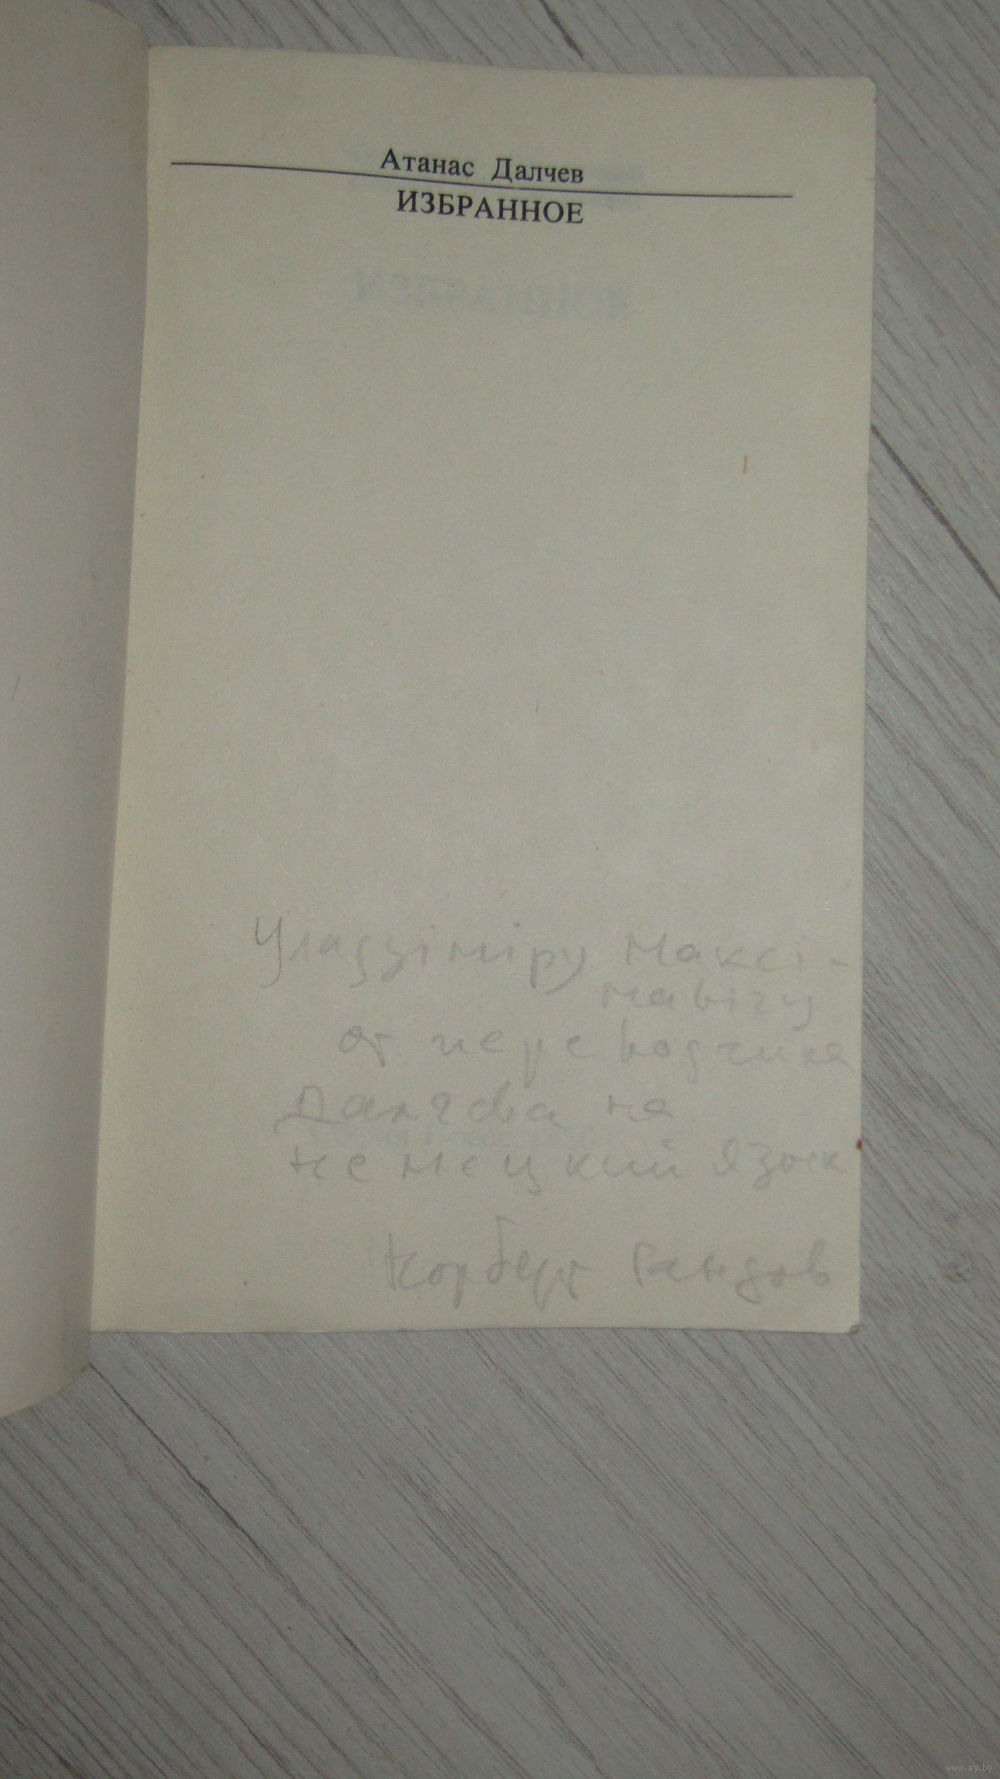 Атанас Далчев
ИЗБРАННОЕ
Уладзіміру Максі-
мавічу
от переводчика
Далчева на
немецкий язык
Норберт Рандов
www.ay.by